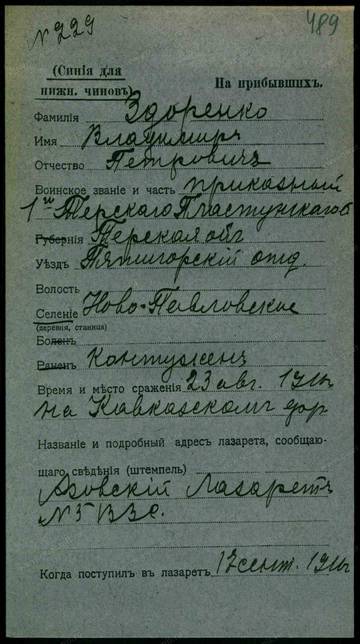 № 229
489
(Синія для нижн. чиновъ)
На прибывшихъ.
Фамилія Здоренко
Имя Владимиръ
Отчество Петровичъ
Воинское званіе и часть приказный
1го Терскаго Пластунскаго б
Губернія Терская обл
Уѣздъ Пятигорскій отд.
Волость
Селеніе Ново-Павловское
(деревня, станица)
Боленъ
Раненъ Контуженъ
Время и мѣсто сраженія 23 авг.
на Кавказскомъ
Названіе и подробный адресъ лазарета, сообщаю-
щаго свѣдѣнія (штемпель)
Азовскій Лазаретъ
№ 5 ВЗС.
Когда поступилъ въ лазаретъ 17 сент.